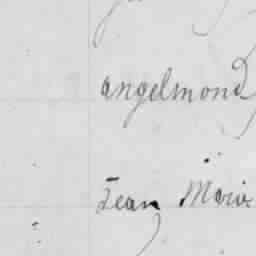 angelmond
Jean Marie